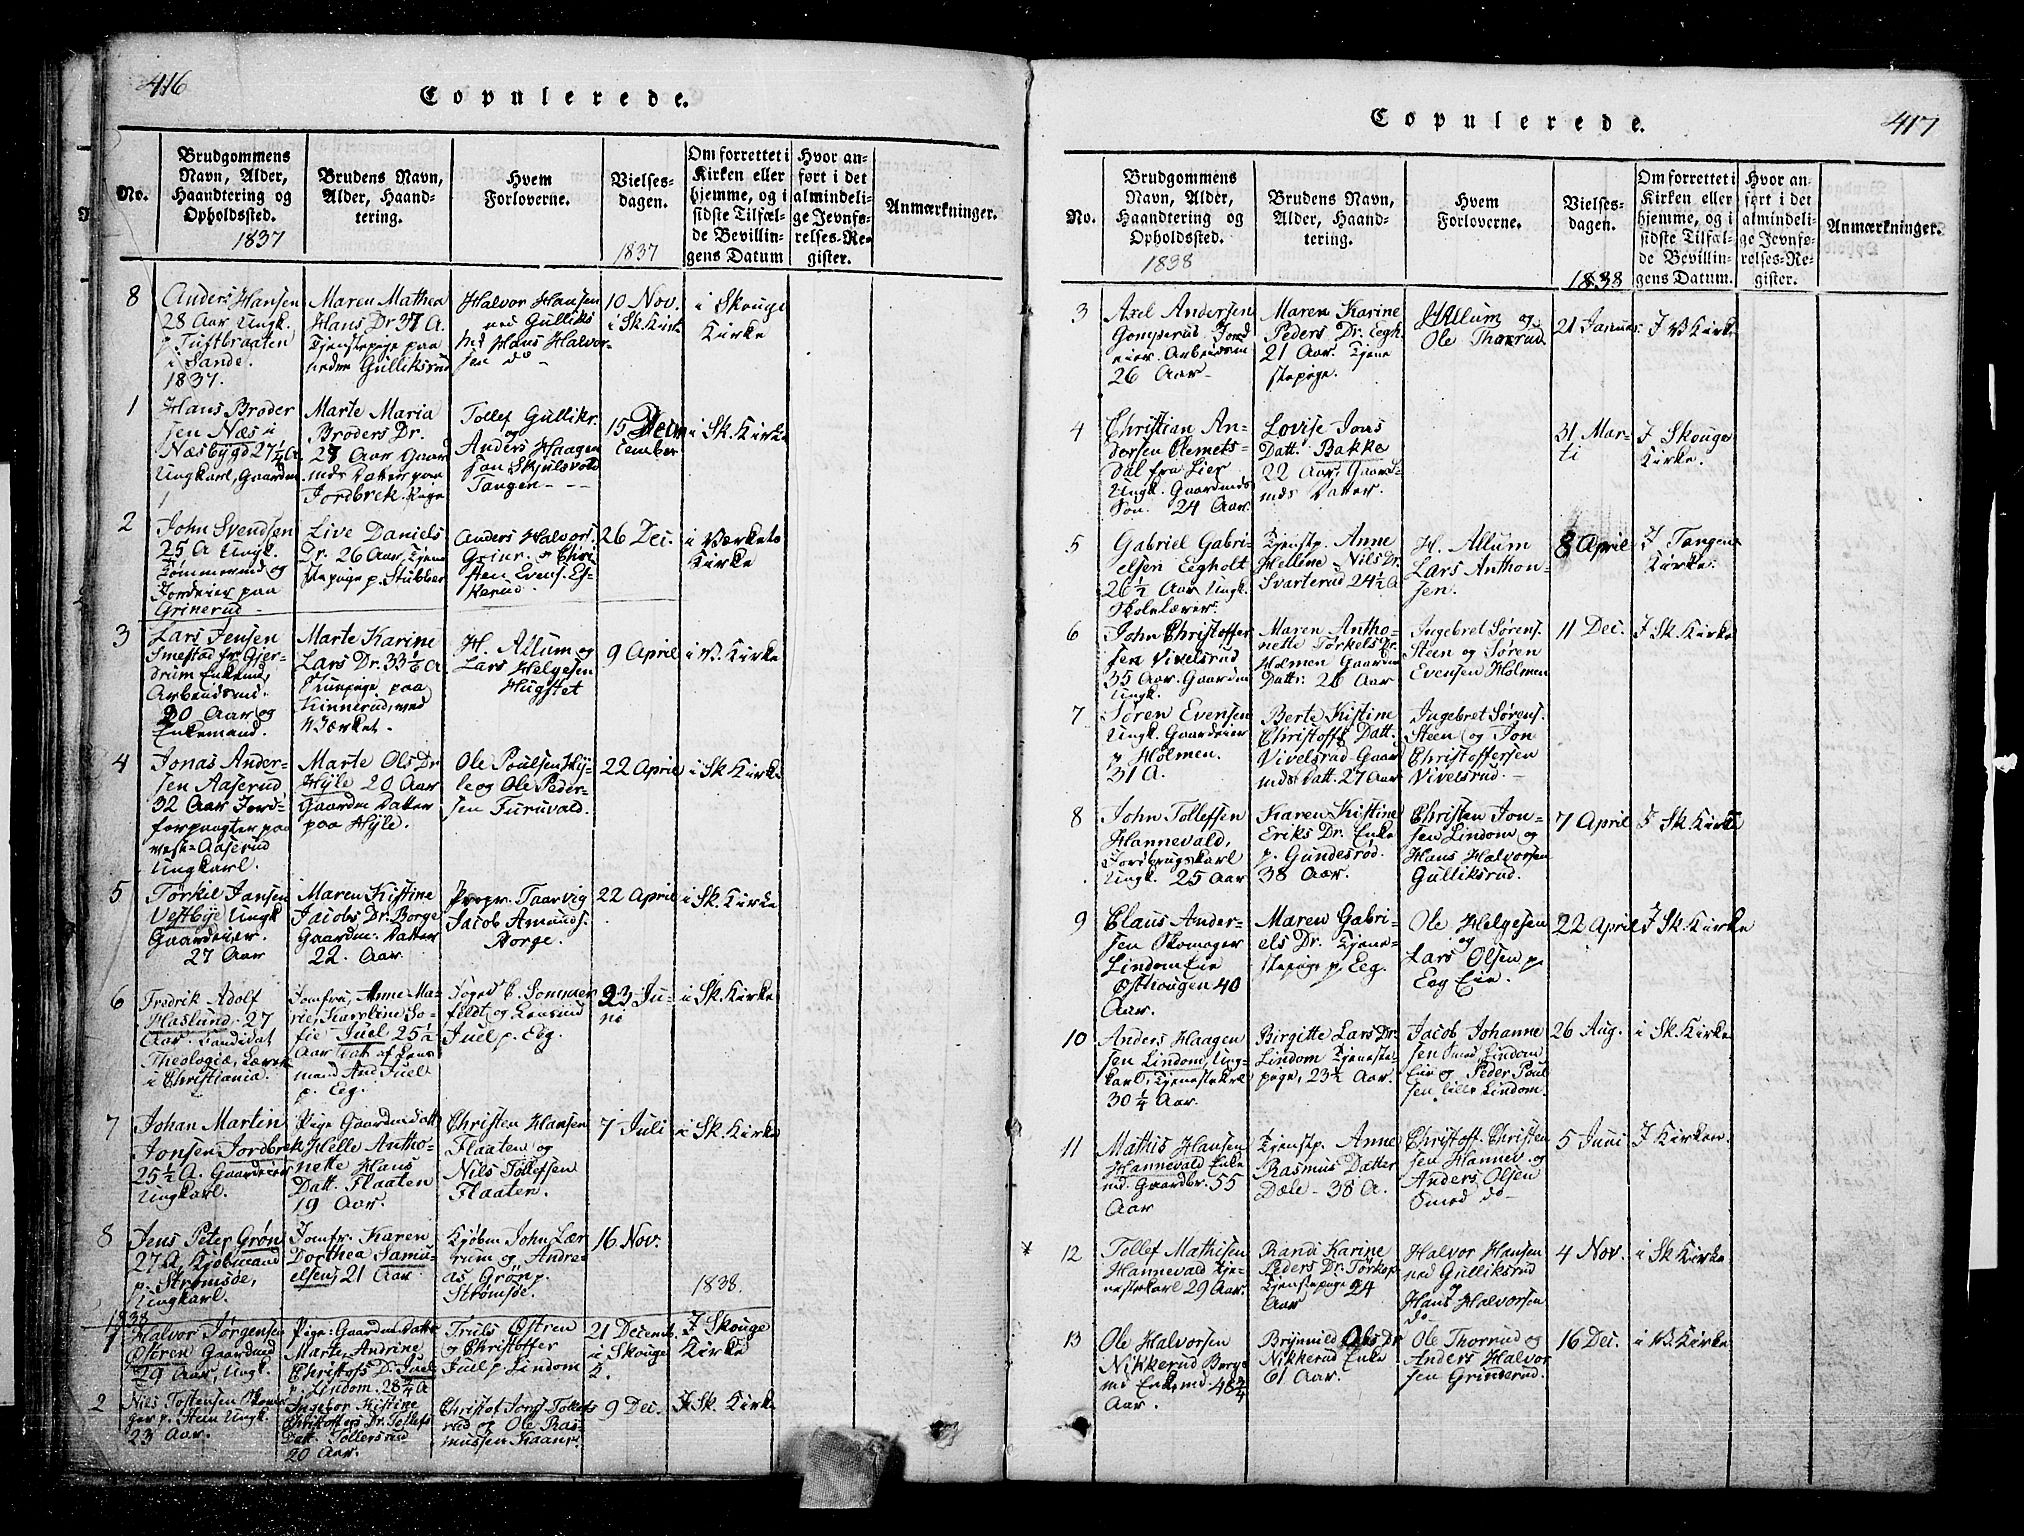 416
Copulerede.
No.
Brudgommens
Navn, Alder,
Haandtering og
Opholdssted.
1837
Brudens Navn,
Alder, Haand-
tering.
Hvem
Forloverne.
Vielses-
dagen.
1837
Om forrettet i
Kirken eller
hjemme, og i
sidste Tilfæl-
de Bevillin-
gens Datum
Hvor an-
ført i det
almindeli-
ge Jevnfø-
relses-Re-
gister.
Anmærkninger.
8
Anders Hansen
28 Aar Ungk.
p. Tuftbraaten
i Sande.
1837.
Maren Mathea
Hans Dr. 37 A.
Tjenstepige paa
nedre Gulliksrud
Halvor Hansen
ned Gulliks
Hans Halvor-
sen do -
10 Nov.
i Sk. Kirk
i Skouge
Kirke
1
Hans Broder
sen Næs i
Næsbygd 27¼ A
Ungkarl, Gaardm.
Marte Maria
Broders Dr.
27 Aar Gaar
mds Datter paa
Jordbrek. Pige
Tollef Gullikr.
og
Anders Haagen
sen Skjulsvold
Tangen - - -
15 Decem
cember
i Sk. Kirke
2
John Svendsen
25 A Ungk.
Tømmermd og
Jordeier paa
Grinerud -
Live Daniels
Dr. 26 Aar, Tjene
stepige p. Stubber
Anders Halvors.
Griner. og Chri
sten Evens. Es-
kerud.
26 Dec.
i Værkets
Kirke
3
Lars Jensen
Smestad fr. Gjer-
drum Enkemd,
Arbeidsmd.
30 Aar og
Enkemand.
Marte Karine
Lars Dr. 33 A
paa
Kinnerud, ved
Værket.
H. Allum og
Lars Helgesen
Hugstet
9 April
i V. Kirke
4
Jonas Ander-
sen Aaserud
32 Aar Jord-
forpagter paa
vest-Aaserud
Ungkarl.
Marte Ols Dr
Hÿle 20 Aar
Gaardm Datter
paa Hÿle.
Ole Poulsen Hÿ-
le og Ole Peder-
sen Furuvald.
22 April
i Sk Kirke
5
Tørkil Jansen
Vestbÿe Ungk
Gaardeier.
27 Aar
Maren Kistine
Jacobs Dr. Borge
Gaardm. Datter
22. Aar
Propr. Taarvig
Jacob Amunds.
Borge.
22 April
i Sk. Kirke
6
Fredrik Adolf
Haslund. 27
Aar. Candidat
Theologiæ, Lærer
i Christiania.
Jomfru Anne Ma-
rie, Karoline So-
fie Juel 25½
Aar Dat. af Lens
mand And Juel
p. Eeg.
Foged C. Sommer
feldt og Lensmd
Juel p. Eeg.
23 Ju-
ni
i Sk. Kirke
7
Johan Martin
Jonsen Jordbrek
25½ A. Gaardeier
Ungkarl.
Pige Gaardm Datt
Helle Antho-
nette Hans
Datt. Flaaten
19 Aar.
Christen Hansen
Flaaten og
Nils Tollefsen
Flaaten.
7 Juli
i Sk. Kirke
8
Jens Peter Grøn
27 A. Kjøbmand
p. Strømsøe,
Ungkarl.
Jomfr. Karen
Dorthea Samu-
elsen, 21 Aar
Kjøbm John Lær
rum og Andre-
as Grøn p.
Strømsøe.
16 Nov.
1838.
1838
1
Halvor Jørgensen
Østeren Gaardmd
29 Aar, Ungk.
Pige: Gaardm Datter
Marte Andrine
Christofs Dr. Juel
p. Lindom. 28¾ A
Truls Østren
og Christoffer
Juel p. Lindom
21 Decemb.
i Skouge
K.
I Skouge
Kirke
2
Nils Tostensen Skoma
ger p. Steen Ungk.
23 Aar.
Ingebor Kistine
Christoffers Dr. Tollefs
Datt. Tollersrud
20 Aar.
Christof Jons Tollefs
rud og Ole Ras-
mussen Kaanr.
9 Dec.
I Sk. Kirke
417
Copulerede.
No.
Brudgommens
Navn, Alder,
Haandtering og
Opholdssted.
1838
Brudens Navn,
Alder, Haand-
tering.
Hvem
Forloverne.
Vielses-
dagen.
1838
Om forrettet i
Kirken eller
hjemme, og i
sidste Tilfæl-
de Bevillin-
gens Datum.
Hvor an-
ført i det
almindeli-
ge Jevnfø-
relses-Re-
gister.
Anmærkninger.
3
Axel Andersen
Gomperud Jord
eier. Arbeidsm
26 Aar -
Maren Karine
Peders Dr. Eegh.
21 Aar. Tjene
stepige.
H Allum og
Ole Thorrud
21 Januar
I V Kirke
4
Christian An-
dersen Clemets-
dal fra Lier
Ungk. Gaardmds
Søn. 24 Aar.
Lovise Jons
Datt. Bakke
22 Aar, Gaard-
mds Datter.
31 Mar-
ti
I Skouge
Kirke.
5
Gabriel Gabri-
elsen Eegholt
26½ Aar Ungk.
Skolelærer.
Tjenstp. Anne
Helline - Nils Dr.
Svarterud 24½ A
H. Allum
Lars Anthon-
sen.
8 April
I Tangens
Kirke.
6
John Christoffer
sen Vivelsrud
35 Aar. Gaardm
Ungk.
Maren Antho-
nette Tørkels Dr.
Holmen Gaardm
Datt. 26 Aar
Ingebret Sørens.
Steen og Søren
Evensen Holmen
11 Dec.
I Sk. Kirke
7
Søren Evensen
Ungk. Gaardeier
p. Holmen.
31 A.
Berte Kistine
Christoffs Datt.
Vivelsrud Gaar
mds Datt. 27 Aar
Ingebret Sørens.
Steen og Jon
Christoffersen
Vivelsrud. -
8
John Tollefsen
Hannevald,
Jordbrugskarl
Ungk. 25 Aar
Karen Kistine
Eriks Dr. Enke
p. Gundesrød.
38 Aar.
Christen Jon-
sen Lindom og
Hans Halvorsen
Gulliksrud.
7 April
I Sk. Kirke
9
Claus Ander-
sen Skomager
Lindom Eie
Østhougen 40
Aar.
Maren Gabri-
els Dr. Tjene-
stepige p. Eeg.
Ole Helgesen
og
Lars Olsen p.
Eeg Eie.
22 April
I Sk. Kirke
10
Anders Haagen
sen Lindom, Ung-
karl, Tjenestekarl
30¼ Aar.
Birgitte Lars Dr.
Lindom Tjeneste-
pige, 23½ Aar.
Jacob Johanne
sen Smed Lindom
Eie og Peder Poul
sen lille Lindom.
26 Aug.
i Sk. Kirke
11
Mathis Hansen
Hannevald Enke
md. Gaardbr. 55
Aar
Tjenstp. Anne
Rasmus Datter
Dæle - 38 A.
Christoff. Christen
sen Hannev. og
Anders Olsen
Smed do -
5 Juni
I Kirken.
12
Tollef Mathisen
Hannevald Tje-
nestekarl 29 Aar.
Randi Karine
Peders Dr. Tørkop
Tjenstepige 24
Aar
Halvor Hansen
ned Gulliksrud
og
Hans Halvorsen
do -
4 Nov.
i Sk Kirke
13
Ole Halvorsen
Nikkerud Berge
md Enkemd. 48¾
Aar.
Brynnild Ols Dr
Nikkerud Enke
61 Aar.
Ole Thorrud og
Anders Halvor
sen Grinderud.
16 Dec.
i V. Kirke